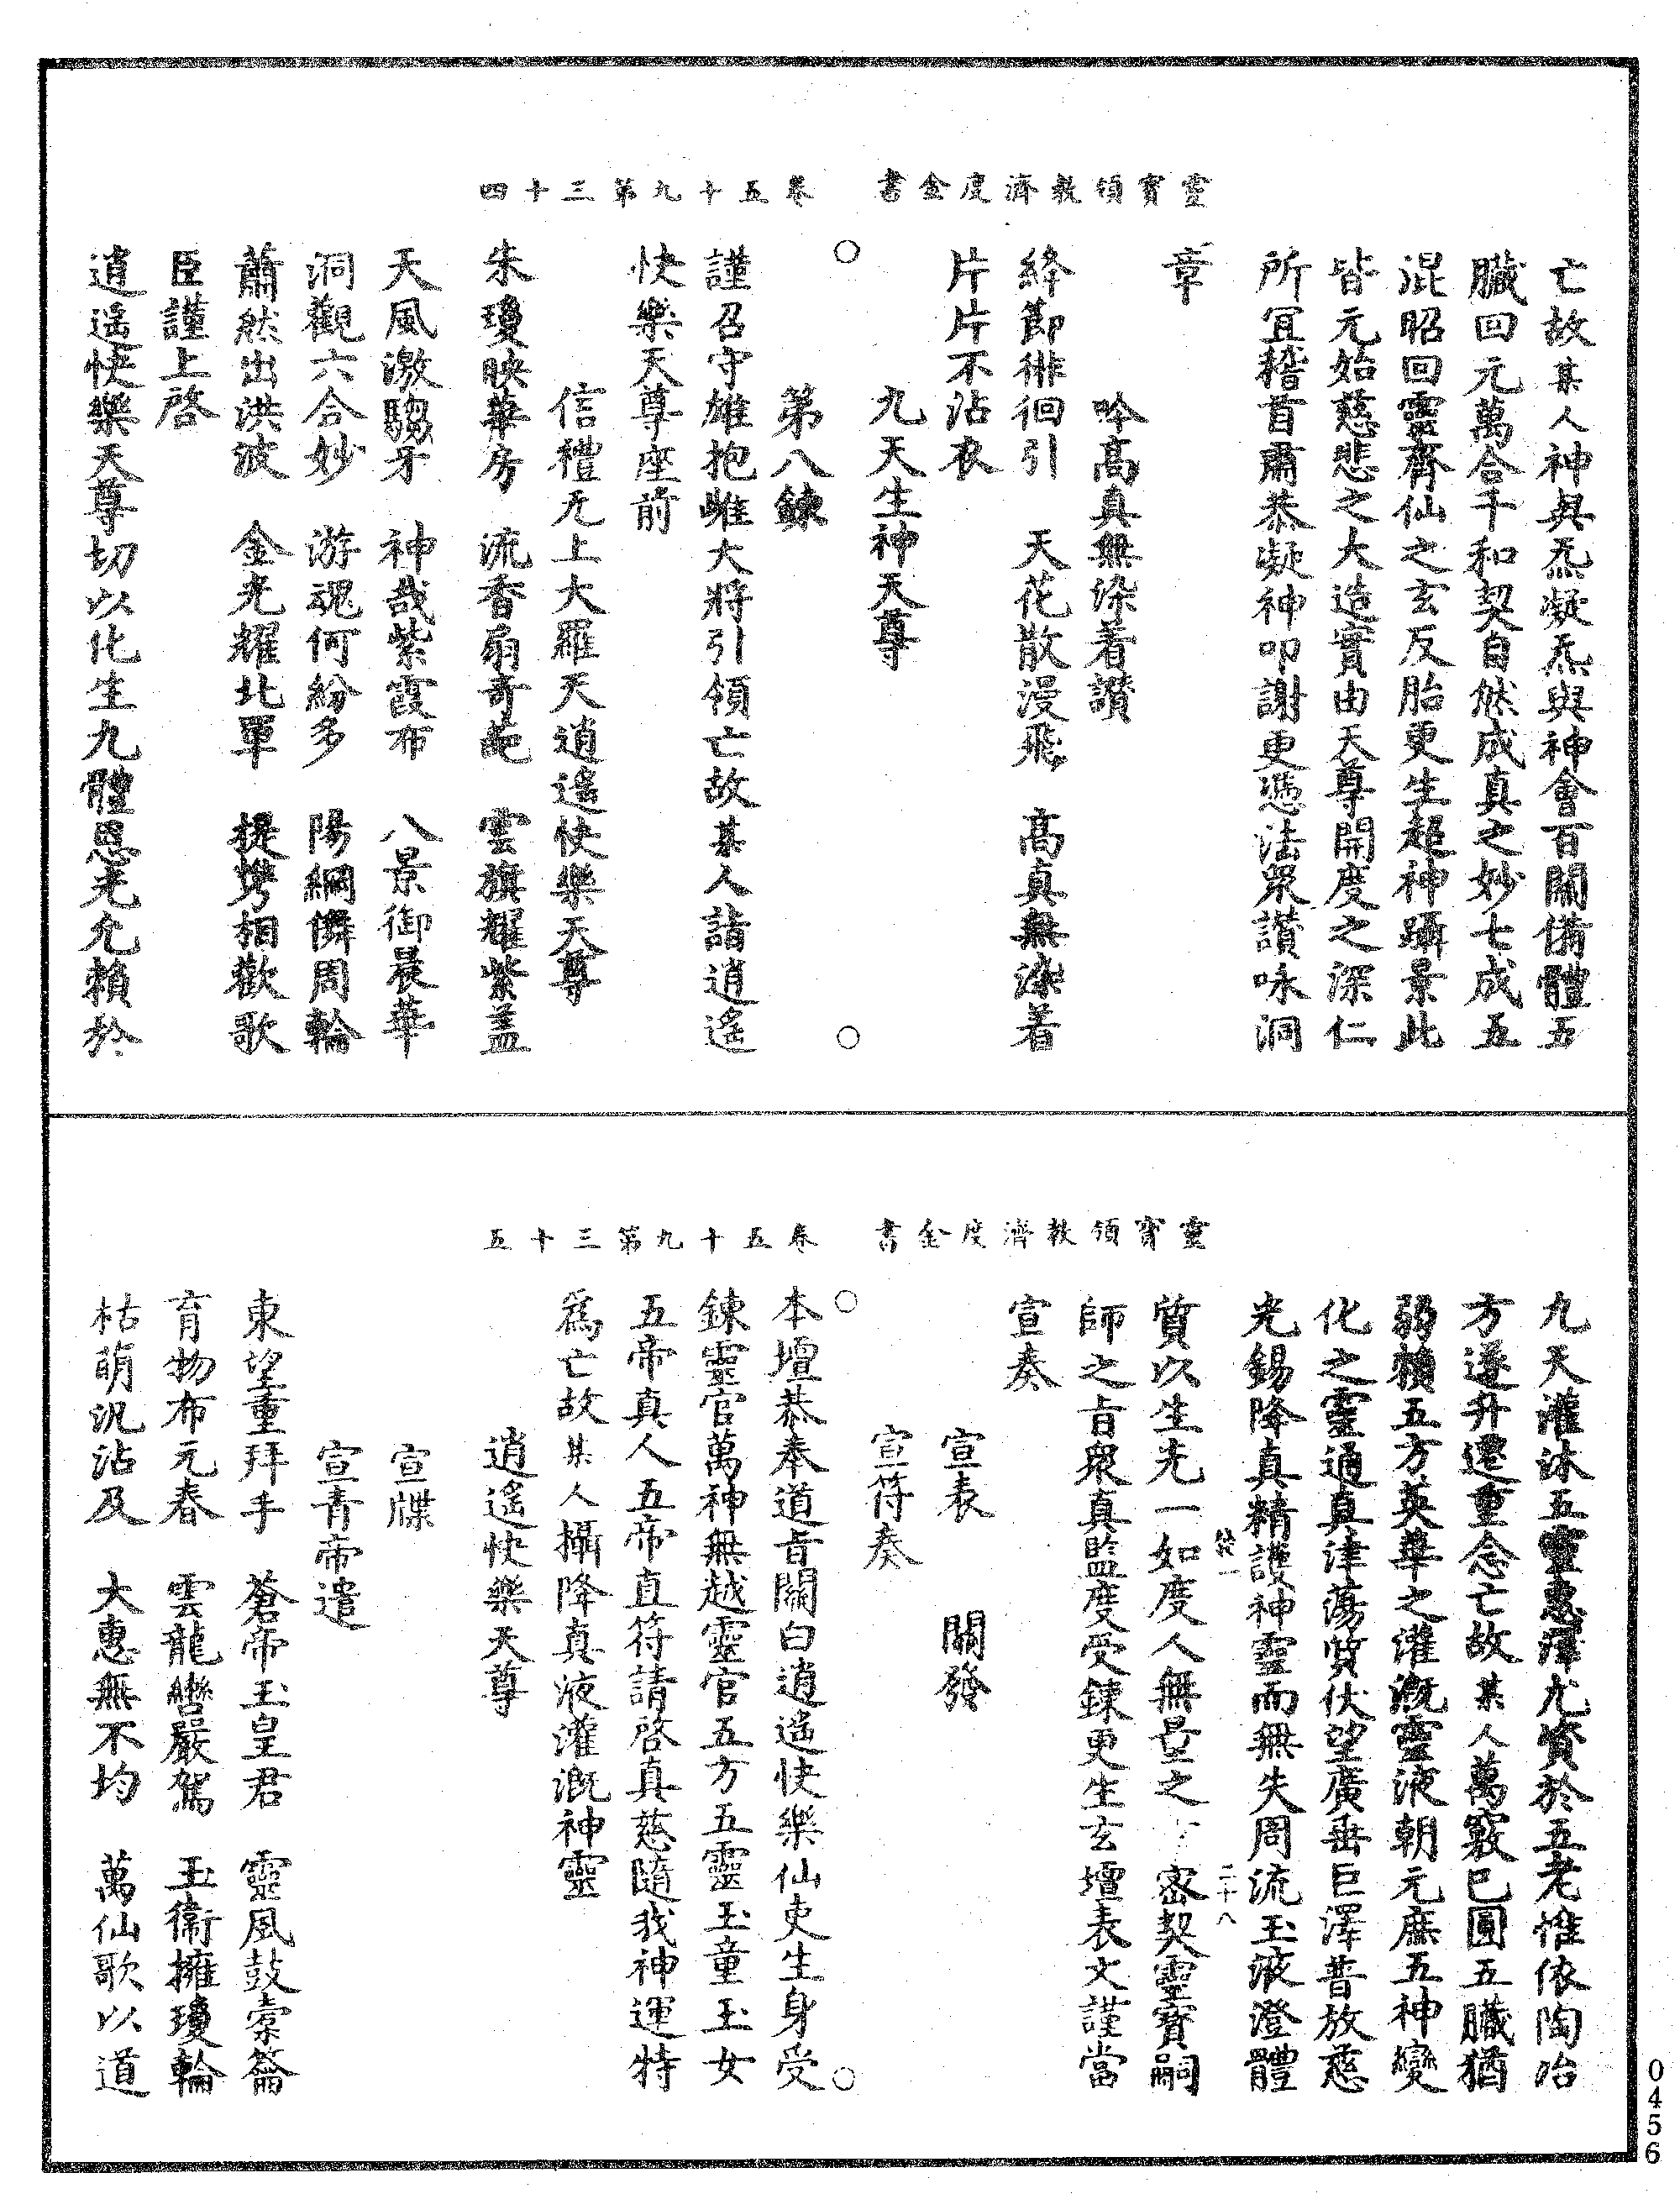 靈寶領教濟度金書　卷五十九第三十四
亡故某人神與炁凝炁與神會百關備體五
臟回元萬合千和契自然成真之妙七成五
混昭回靈齊仙之玄反胎更生起神躡景此
皆元始慈悲之大造實由天尊開度之深仁
所冝稽首肅恭凝神叩謝更慿法眾讚咏洞
章
吟高真無染着讚
絳節徘徊引　天花散漫飛　高真無染着
片片不沾衣
九天生神天尊
○　○
第八鍊
謹召守雄抱雌大將引領亡故某人詣逍遙
快樂天尊座前
信禮无上大羅天逍遙快樂天尊
朱瓊映華房　流香扇奇葩　雲旗耀紫盖
天風激騶牙　神哉紫霞布　八景御晨華
洞觀六合妙　游魂何紛多　陽綱儛周輪
蕭然出洪波　金光耀北單　提携相歡歌
臣謹上啓
逍遙快樂天尊切以化生九體恩光允賴於
靈寶領教濟度金書　卷五十九第三十五
九天灌沐五靈惠澤尤資於五老惟依陶冶
方遂升遷重念亡故某人萬竅已圓五臟猶
弱賴五方英華之灌溉靈液朝元廡五神變
化之靈通真津蕩質伏望廣垂巨澤普放慈
光錫降真精護神靈而無失周流玉液澄體
一　二十八
質以生光一如度人無量之　密契靈寶嗣
師之旨眾真監度受鍊更生玄壇表文謹當
宣奏
宣表　關發
宣符奏
○　○
本壇恭奉道旨關白逍遙快樂仙吏生身受
鍊靈官萬神無越靈官五方五靈玉童玉女
五帝真人五帝直符請啓真慈隨我神運特
爲亡故某人攝降真液灌溉神靈
逍遙快樂天尊
宣牒
宣青帝遣
東望重拜手　蒼帝玉皇君　靈風鼓橐籥
育物布元春　雲龍轡嚴駕　玉衛擁瓊輪
枯萌汎沾及　大惠無不均　萬仙歌以道
0456